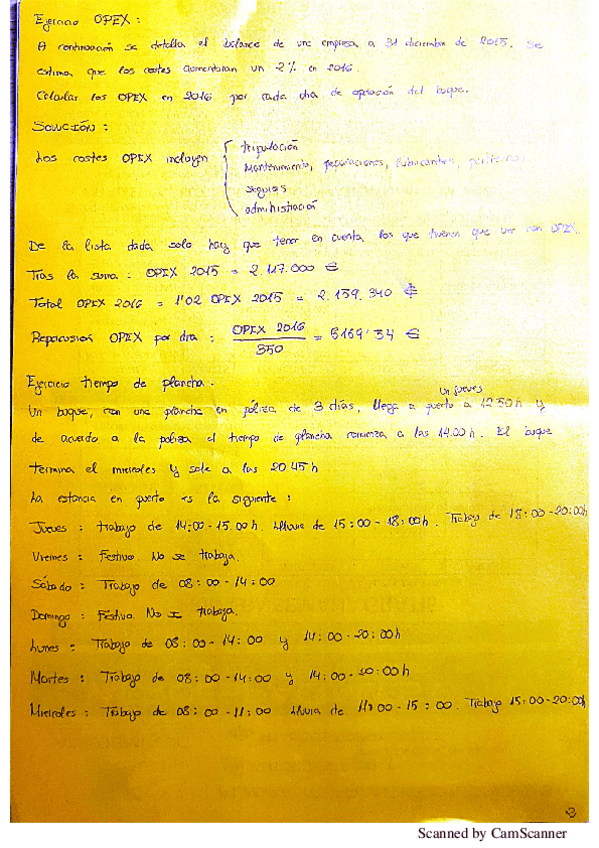 Ejercicio OPEX :
A continuación se detalla el balance de una empresa a 31 diciembre de 2015. Se
estima que los costes aumentaran un 2% en 2016.
Calcular los OPEX en 2016 por cada dia de operación del buque.
SOLUCIÓN :
Los costes OPEX incluyen
tripulación
Mantenimiento, reparaciones, lubricantes,
seguros
administración
De la lista dada solo hay que tener en cuenta los que tienen que ver con OPEX.
Tras la suma : OPEX 2015 = 2.117.000 €
Total OPEX 2016 = 1'02 OPEX 2015 = 2.159.340 €
Repercusión OPEX por dia : OPEX 2016 / 350 = 6169'54 €
Ejercicio tiempo de plancha.
un jueves
Un buque, con una plancha en póliza de 3 días, llega a puerto a 12:50 h y
de acuerdo a la poliza el tiempo de plancha comienza a las 14:00 h. El buque
termina el miercoles y sale a las 20:45 h
La estancia en puerto es la siguiente :
Jueves : trabajo de 14:00-15:00 h. Lluvia de 15:00-18:00 h. Trabajo de 18:00-20:00h
Viernes : Festivo. No se trabaja.
Sábado : Trabajo de 08:00-14:00
Domingo : Festivo. No se trabaja.
Lunes : Trabajo de 08:00-14:00 y 14:00-20:00h
Martes : Trabajo de 08:00-14:00 y 14:00-20:00h
Miercoles : Trabajo de 08:00-11:00 Lluvia de 11:00-15:00. Trabajo 15:00-20:00h
Scanned by CamScanner